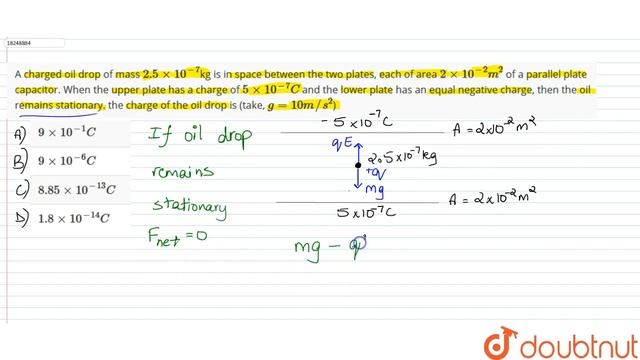 18248884
A charged oil drop of mass 2.5 × 10⁻⁷kg is in space between the two plates, each of area 2 × 10⁻²m² of a parallel plate
capacitor. When the upper plate has a charge of 5 × 10⁻⁷C and the lower plate has an equal negative charge, then the oil
remains stationary, the charge of the oil drop is (take, g = 10m/s²)
A) 9 × 10⁻¹C
B) 9 × 10⁻⁶C
C) 8.85 × 10⁻¹³C
D) 1.8 × 10⁻¹⁴C
If oil drop
remains
stationary
Fnet = 0
- 5 × 10⁻⁷ C
A = 2×10⁻² m²
qE
2.5 × 10⁻⁷ kg
+q
mg
A = 2 × 10⁻² m²
5 × 10⁻⁷ C
mg - q
doubtnut